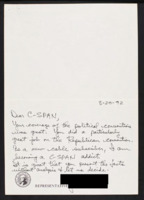 8-24-92
Dear C-SPAN,
Your coverage of the political conventions
was great. You did a particularly
great job on the Republican convention.
As a new cable subscriber, I am
becoming a C-SPAN addict.
It is great that you present the facts
without analysis & let us decide.
REPRESENTATIVE